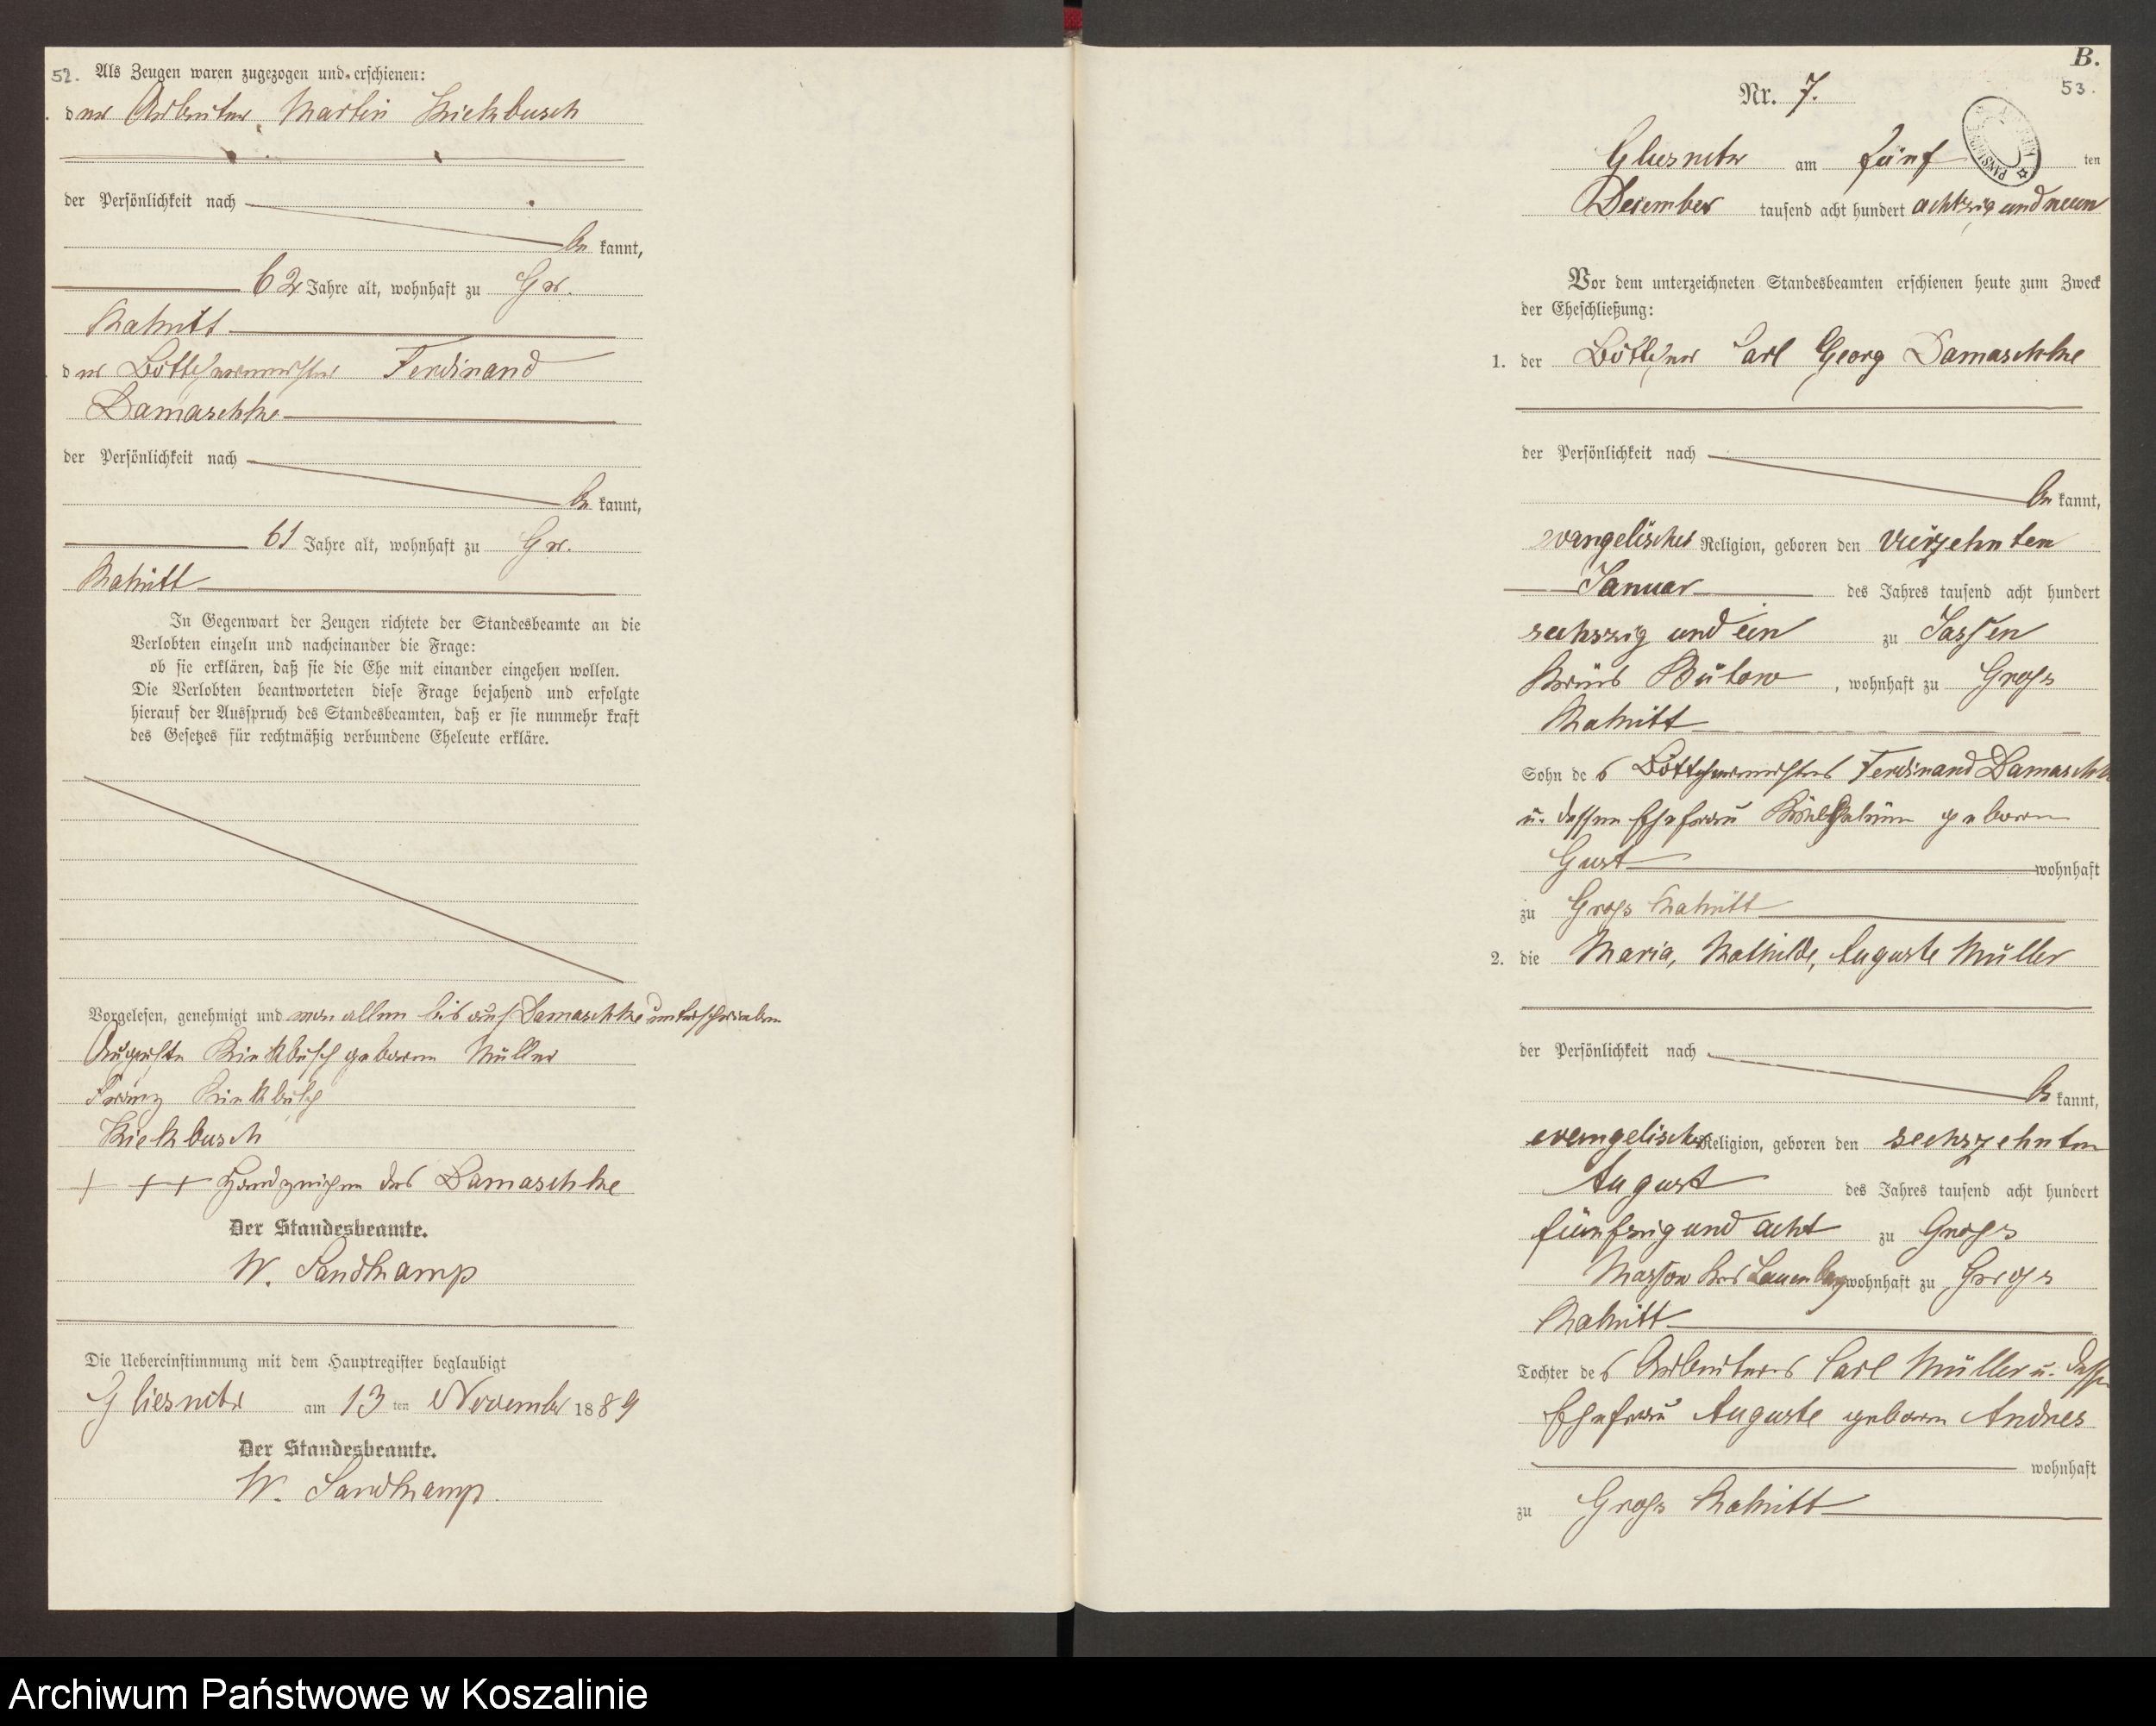 52. Als Zeugen waren zugezogen und erschienen:
der Arbeiter Martin Kiekbusch
der Persönlichkeit nach
be kannt,
62 Jahre alt, wohnhaft zu Gr.
Rakitt
der Böttchermeister Ferdinand
Damaschke
der Persönlichkeit nach
be kannt,
61 Jahre alt, wohnhaft zu Gr.
Rakitt
In Gegenwart der Zeugen richtete der Standesbeamte an die
Verlobten einzeln und nacheinander die Frage:
ob sie erklären, daß sie die Ehe mit einander eingehen wollen.
Die Verlobten beantworteten diese Frage bejahend und erfolgte
hierauf der Ausspruch des Standesbeamten, daß er sie nunmehr kraft
des Gesetzes für rechtmäßig verbundene Eheleute erkläre.
Vorgelesen, genehmigt und von allen bis auf Damaschke unterschrieben
Auguste Kiekbusch geborene Müller
Franz Kiekbusch
Kiekbusch
+ + + Handzeichen des Damaschke
Der Standesbeamte.
W. Sandkamp
Die Uebereinstimmung mit dem Hauptregister beglaubigt
Gliesnitz am 13 ten November 1889
Der Standesbeamte.
W. Sandkamp.
B.
53.
Nr. 7.
Gliesnitz am fünf ten
Dezember tausend acht hundert achtzig und neun
Vor dem unterzeichneten Standesbeamten erschienen heute zum Zweck
der Eheschließung:
1. der Böttcher Carl Georg Damaschke
der Persönlichkeit nach
be kannt,
evangelischer Religion, geboren den vierzehnten
Januar des Jahres tausend acht hundert
sechszig und ein zu Jassen
Kreis Bütow, wohnhaft zu Gross
Rakitt
Sohn des Böttchermeisters Ferdinand Damaschke
u. dessen Ehefrau geborene
Gust wohnhaft
zu Gross Rakitt
2. die Maria, Mathilde, Auguste Müller
der Persönlichkeit nach
be kannt,
evangelischer Religion, geboren den sechszehnten
August des Jahres tausend acht hundert
fünfzig und acht zu Gross
Massow Krs Lauenburg wohnhaft zu Gross
Rakitt
Tochter des Arbeiters Carl Müller u. dessen
Ehefrau Auguste geborene Andres
wohnhaft
zu Gross Rakitt
Archiwum Państwowe w Koszalinie